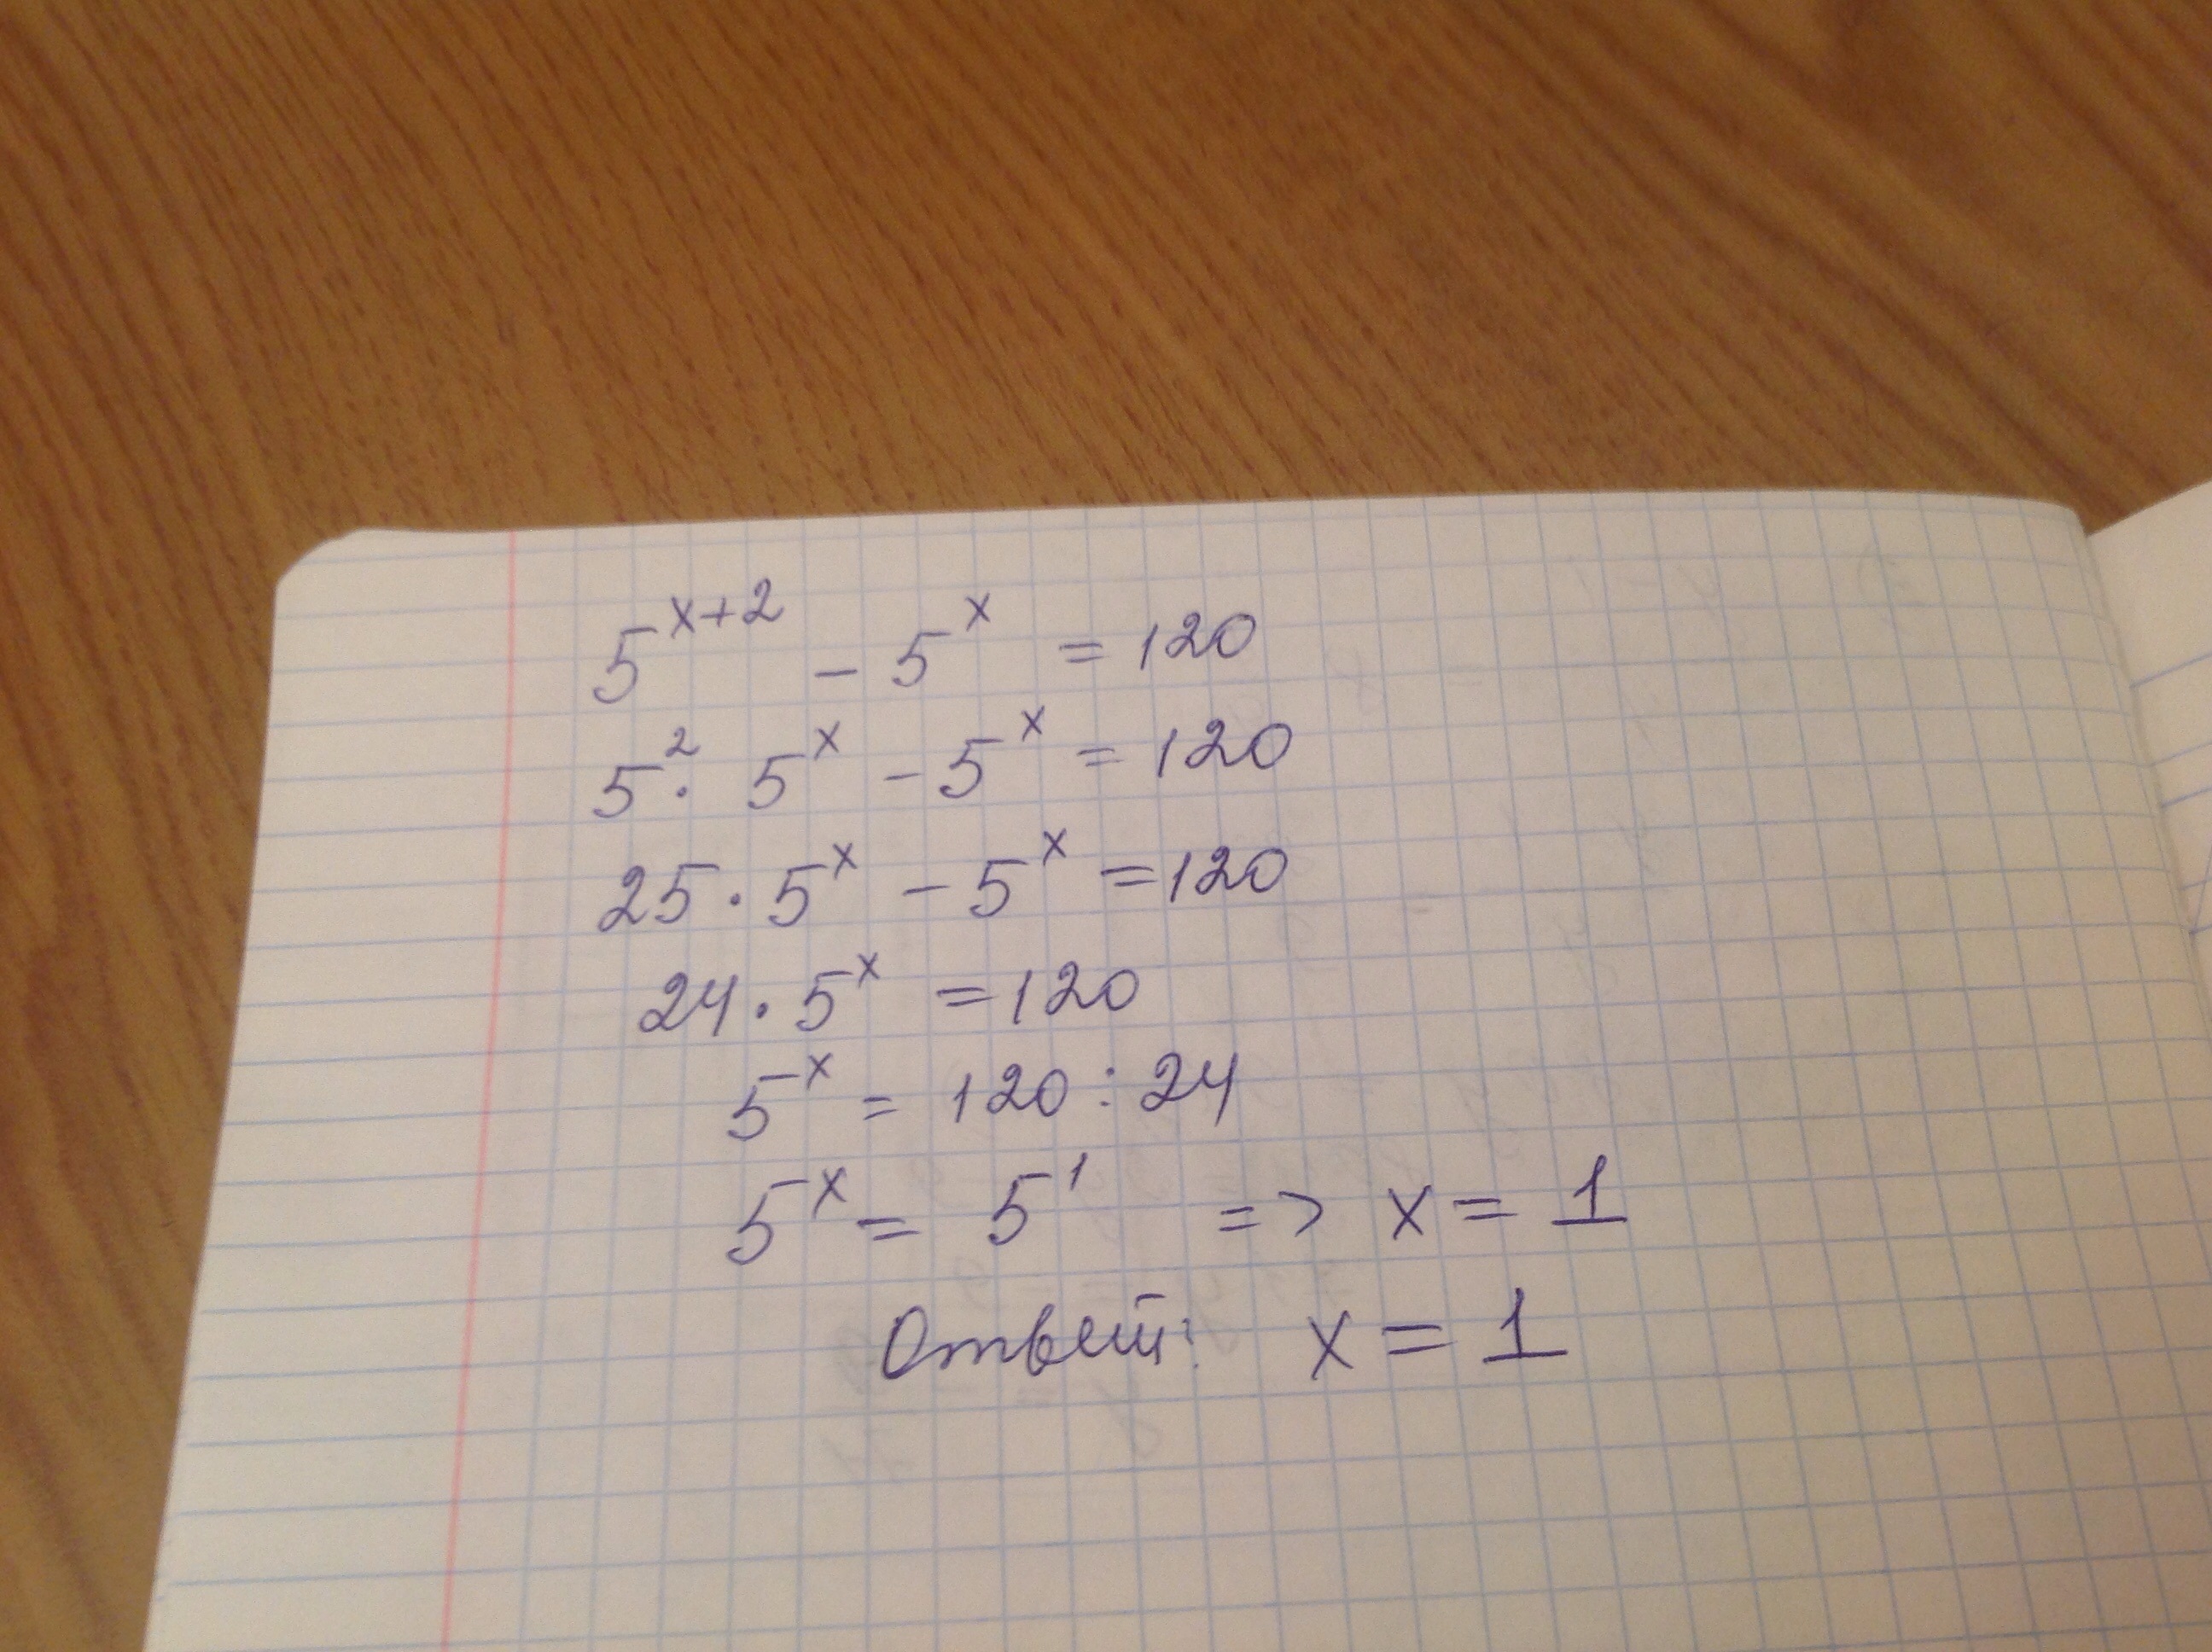 5^{x+2} - 5^x = 120
5^2 · 5^x - 5^x = 120
25 · 5^x - 5^x = 120
24 · 5^x = 120
5^x = 120 : 24
5^x = 5^1 => x = 1
Ответ: x = 1